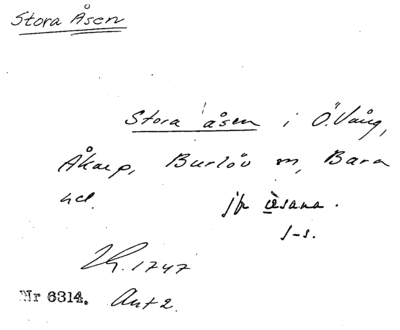 Stora Åsen
Stora åsen i Ö. Vång,
Åkarp, Burlöv sn, Bara
hd. jfr åsana.
s-s.
Lm. 1747
Nr 6314. Akt 2.